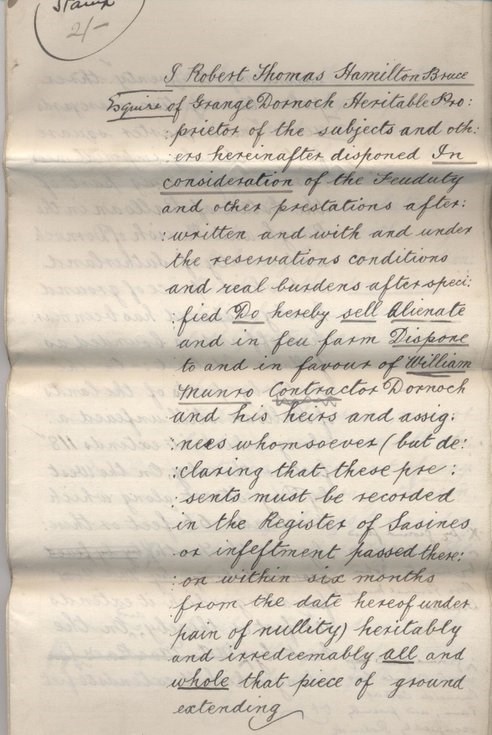 Stamp
2/-
I Robert Thomas Hamilton Bruce
Esquire of Grange Dornoch Heritable Pro:
:prietor of the subjects and oth:
:ers hereinafter disponed In
consideration of the Feuduty
and other prestations after:
:written and with and under
the reservations conditions
and real burdens after speci:
:fied Do hereby sell Alienate
and in feu farm Dispone
to and in favour of William
Munro Contractor Dornoch
and his heirs and assig:
:nees whomsoever (but de:
:claring that these pre:
:sents must be recorded
in the Register of Sasines
or infeftment passed there:
:on within six months
from the date hereof under
pain of nullity) heritably
and irredeemably all and
whole that piece of ground
extending